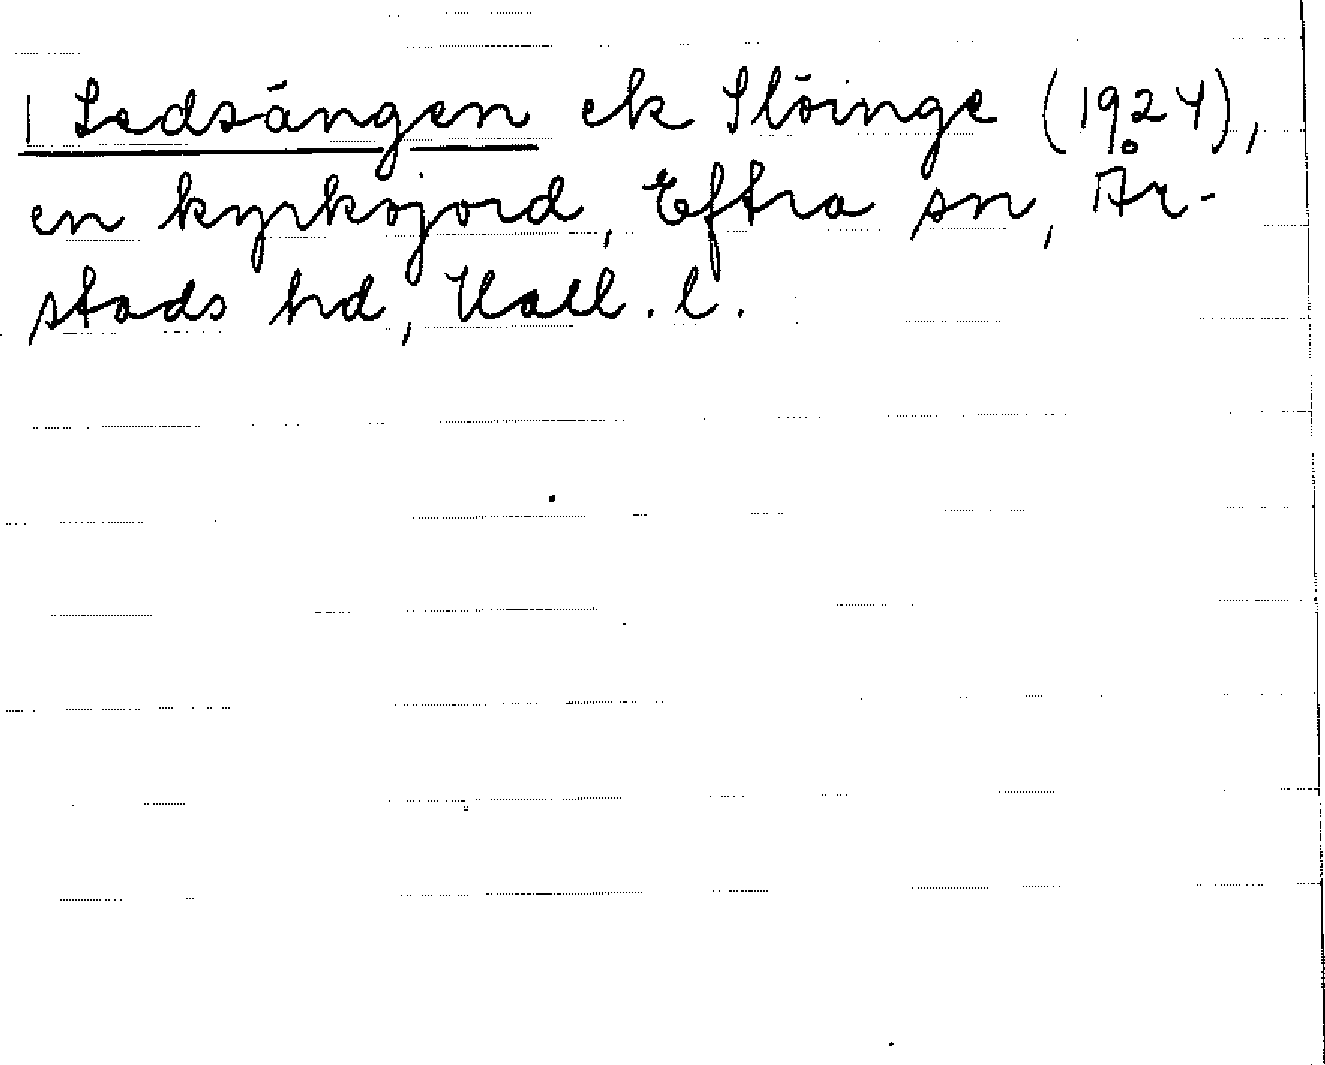 | Sedsängen ek Slöinge (1924),
en kyrkojord, Eftra sn, År-
stads hd, Hall. l.